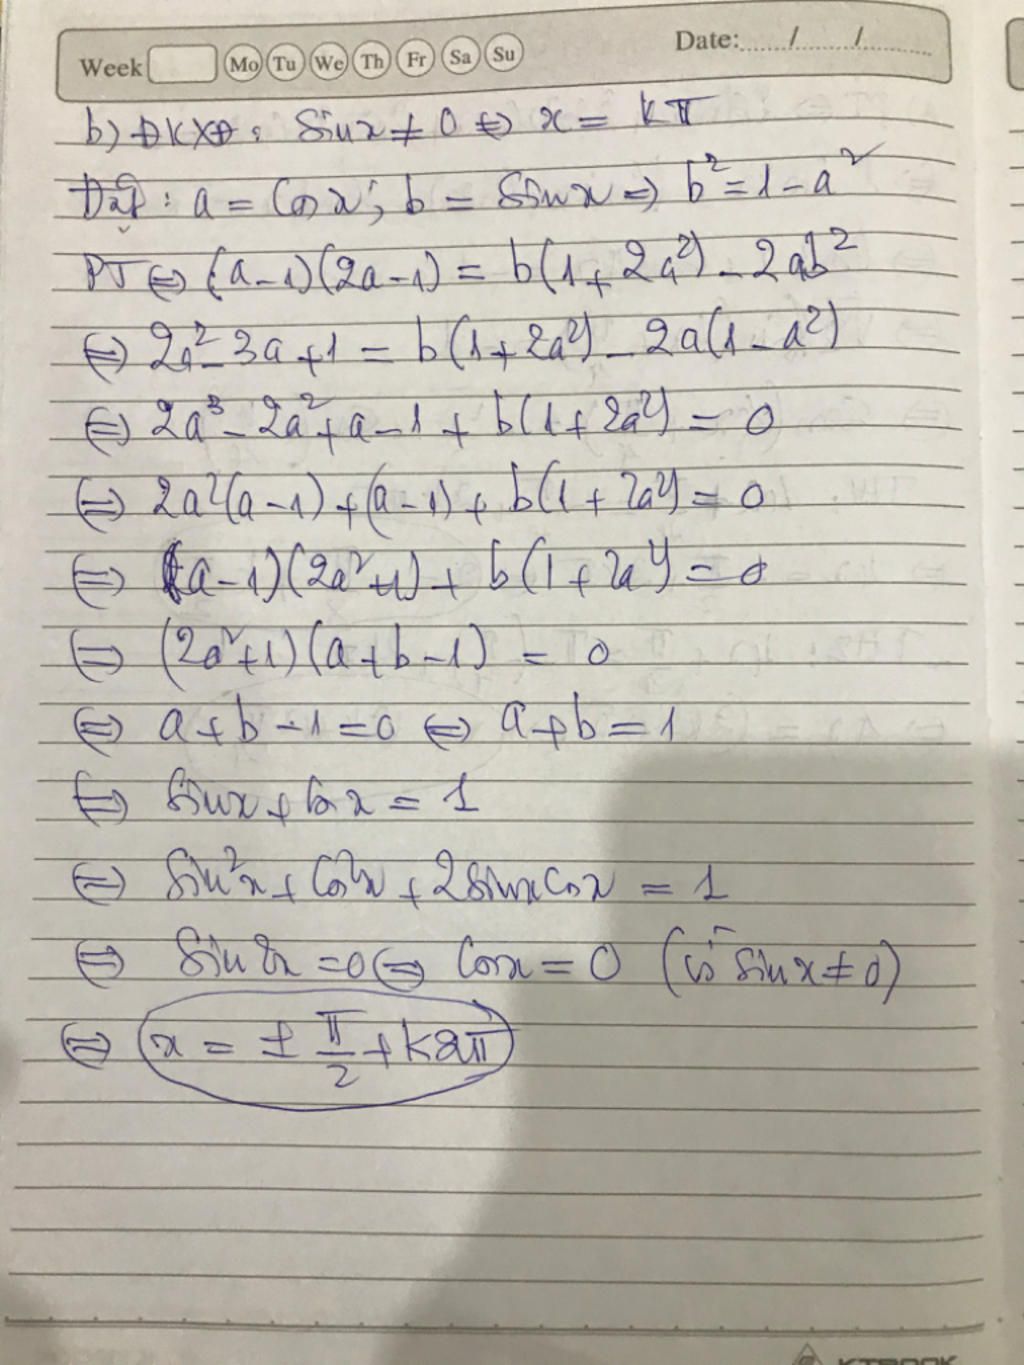 Week Mo Tu We Th Fr Sa Su Date: ....../....../......
b) ĐKXĐ: Sinx ≠ 0 ⇔ x = kπ
Đặt: a = Cosx; b = Sinx ⇒ b² = 1 - a²
PT ⇔ (a-1)(2a-1) = b(1+2a²) - 2ab²
⇔ 2a² - 3a + 1 = b(1+2a²) - 2a(1-a²)
⇔ 2a³ - 2a² + a - 1 + b(1+2a²) = 0
⇔ 2a²(a-1) + (a-1) + b(1+2a²) = 0
⇔ (a-1)(2a²+1) + b(1+2a²) = 0
⇔ (2a²+1)(a+b-1) = 0
⇔ a+b-1=0 ⇔ a+b=1
⇔ Sinx + Cosx = 1
⇔ Sin²x + Cos²x + 2SinxCosx = 1
⇔ Sin2x = 0 ⇔ Cosx = 0 (vì Sinx ≠ 0)
⇔ x = ± π/2 + k2π